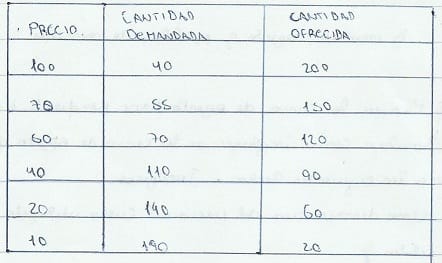 PRECIO. CANTIDAD DEMANDADA CANTIDAD OFRECIDA
100 40 200
70 55 150
60 70 120
40 110 90
20 140 60
10 190 20